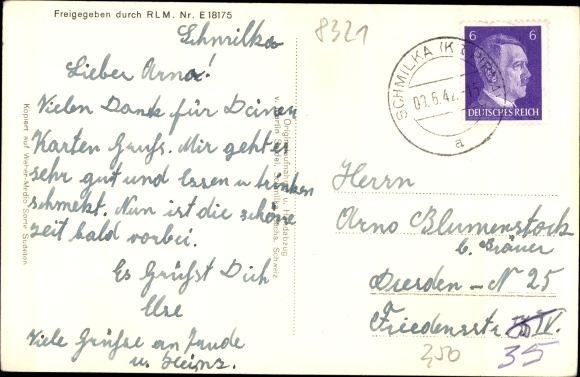 Freigegeben durch RLM. Nr. E 18175
Schmilka
Lieber Arno!
Vielen Dank für Deinen
Karten Gruß. Mir geht es
sehr gut und Essen u trinken
schmekt. Nun ist die schöne
zeit bald vorbei.
Es Grüßt Dich
Else
Viele Grüße an
u. Heinz.
Kopiert auf Wehel-Medio Sorte Sudeten
Originalaufnahme u. Handabzug
v. Martin Schmilka Sächs. Schweiz.
8321
6 6
DEUTSCHES REICH
SCHMILKA (KR PIRNA)
09.6.42
a
Herrn
Arno Blumenstock
b. Bräuer
Dresden - N 25
Friedensstr IV.
35
2,50